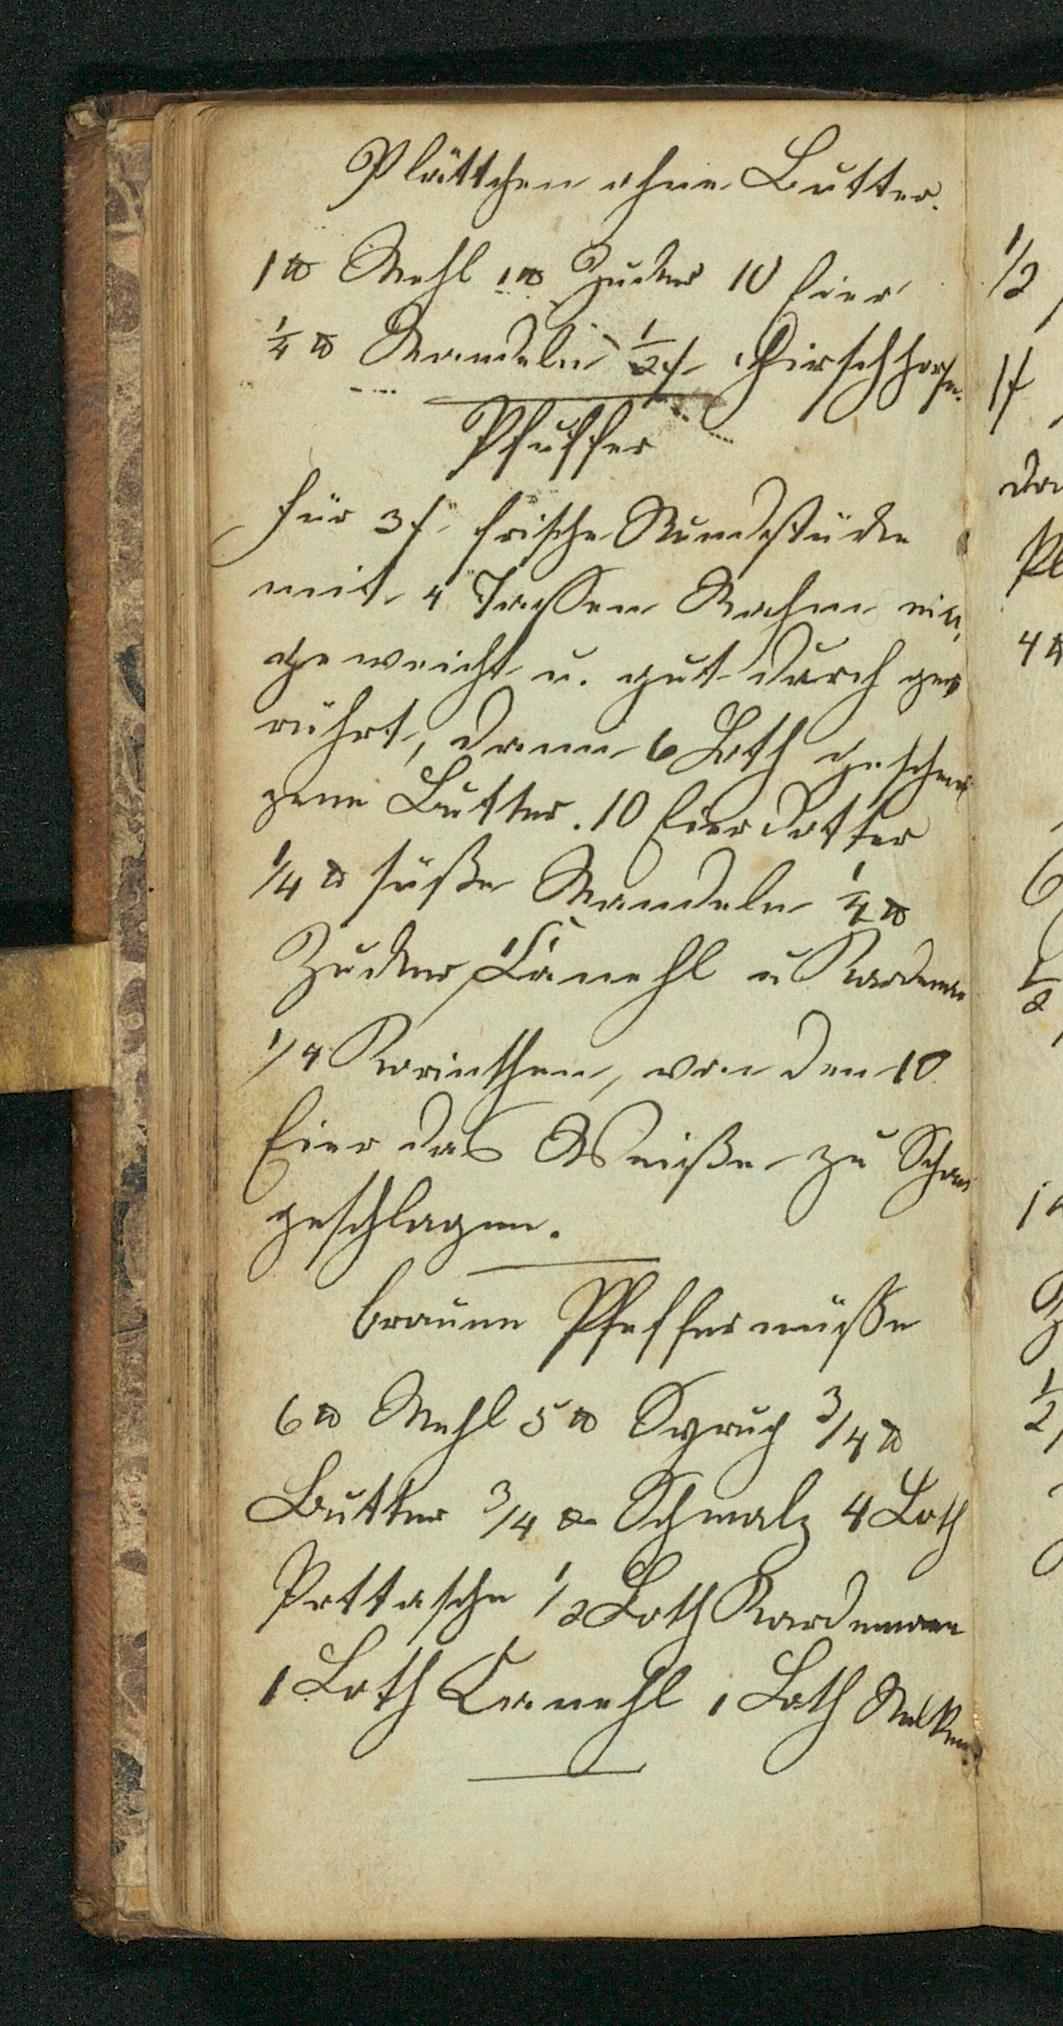 Plättchen ohne Butter.
1 ℔ Mehl 1 ℔ Zucker 10 Eier
1/4 ℔ Mandeln 1/2 ß Hirschhorn.
Pfuffer
für 3 ß frische Rundstücke
mit 4 Tassen Rahm ein,
geweicht u. gut durch ge
rührt, dann 6 Loth geschmol
zene Butter. 10 Eier Dotter
1/4 ℔ süße Mandeln 1/4 ℔
Zucker, Canehl u Kardemom
1/4 Korinthen, von den 10
Eier das Weiße zu Schaum
geschlagen.
braune Pfeffernüsse
6 ℔ Mehl 5 ℔ Syrup 3/4 ℔
Butter 3/4 ℔ Schmalz 4 Loth
Pottasche 1/2 Loth Kardemom
1 Loth Canehl 1 Loth Nelken.